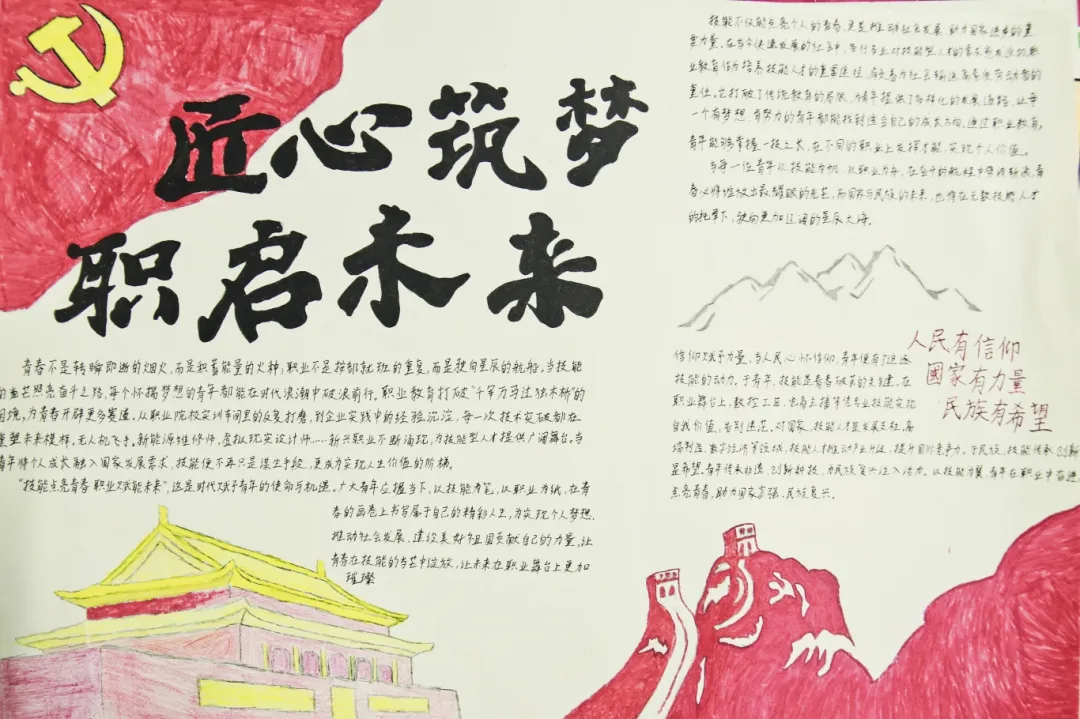 匠心筑梦
职启未来
青春不是转瞬即逝的烟火,而是积蓄能量的火种;职业不是按部就班的重复,而是驶向星辰的航船。当技能
的光芒照亮奋斗之路,每个怀揣梦想的青年都能在时代浪潮中破浪前行。职业教育打破“千军万马过独木桥”的
困境,为青春开辟更多赛道。从职业院校实训车间里的反复打磨,到企业实践中的经验沉淀,每一次技术突破都在
重塑未来模样。无人机飞手、新能源维修师、虚拟现实设计师……新兴职业不断涌现,为技能型人才提供广阔舞台。当
青年将个人成长融入国家发展需求,技能便不再只是谋生手段,更成为实现人生价值的阶梯。
“技能点亮青春 职业赋能未来”,这是时代赋予青年的使命与机遇。广大青年应握当下,以技能为笔,以职业为纸,在青
春的画卷上书写属于自己的精彩人生,为实现个人梦想、
推动社会发展、建设美好祖国贡献自己的力量,让
青春在技能的光芒中绽放,让未来在职业舞台上更加
璀璨
技能不仅能点亮个人的青春,更是推动社会发展、助力国家进步的重
要力量。在当今快速发展的社会中,各行各业对技能型人才的需求愈发迫切,职
业教育作为培养技能人才的重要途径,肩负着为社会输送高素质劳动者的
重任。它打破了传统教育的局限,为青年提供了多样化的发展道路,让每
一个有梦想、肯努力的青年都能找到适合自己的成长方向。通过职业教育,
青年能够掌握一技之长,在不同的职业上发挥才能,实现个人价值。
当每一位青年以技能为帆,以职业为舟,在奋斗的航程中乘风破浪,青
春必将绽放出最耀眼的光芒,而国家与民族的未来,也将在无数技能人才
的托举下,驶向更加辽阔的星辰大海。
人民有信仰
国家有力量
民族有希望
信仰赋予力量,当人民心怀信仰,青年便有了追逐
技能的动力。于青年,技能是青春破茧的关键。在
职业舞台上,数控工匠、电商主播等凭专业技能实现
自我价值,告别迷茫。对国家,技能人才是发展支柱。高
端制造、数字经济等领域,技能人才推动产业升级,提升国际竞争力。于民族,技能传承创新
显希望。青年传承非遗、创新科技,为民族复兴注入活力。以技能为翼,青年在职业中奋进,
点亮青春,助力国家富强、民族复兴。